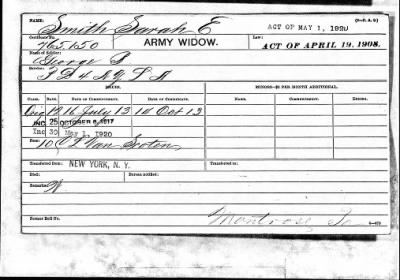 NAME: Smith Sarah E ACT OF MAY 1, 1920
Certificate No. 765.650 ARMY WIDOW. Law: ACT OF APRIL 19, 1908.
Name of Soldier: George
Service:
ISSUE. MINORS—$2 PER MONTH ADDITIONAL.
CLASS. RATE. DATE OF COMMENCEMENT. DATE OF CERTIFICATE. NAME. COMMENCEMENT. ENDING.
Orig 12 16 July 13 14 Oct 13
INC. 25 OCTOBER 6, 1917
Inc 30 May 1, 1920
To O. L. Van Scoten
Transferred from NEW YORK, N. Y. Transferred to
Died: Bureau notified:
Remarks: W
Former Roll No. Montrose